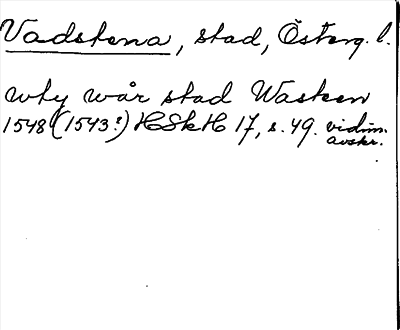 Vadstena, stad, Österg. l.
uthy wår stad Wasteen
1548 (1543?) HSkH 17, s. 49. vidim.
avskr.